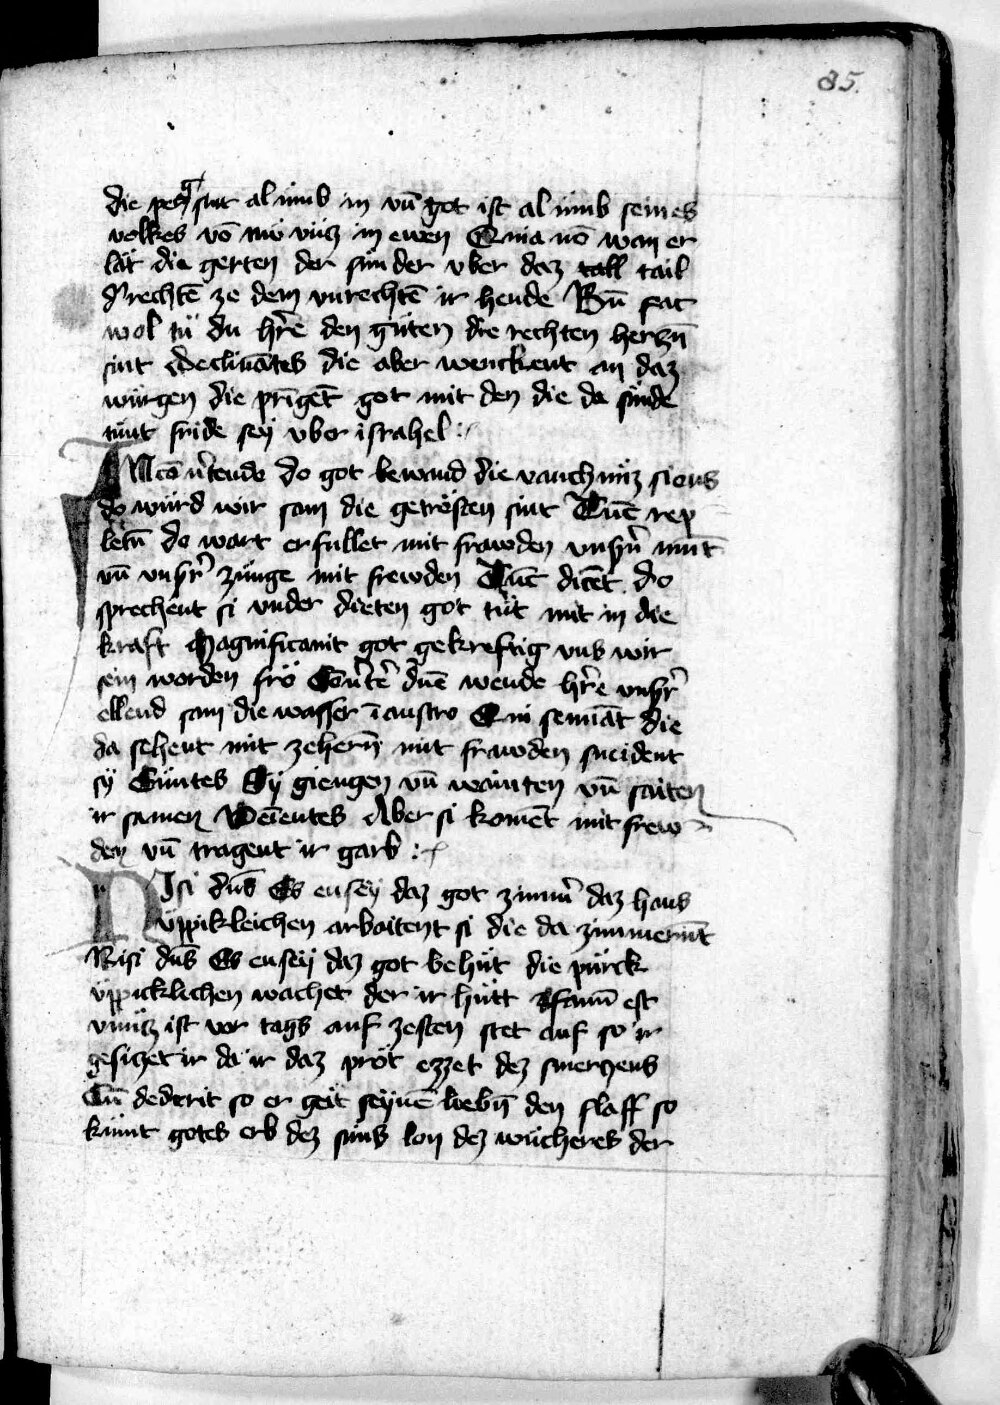 85.
die perg sint al ümb in vn̄ got ist al ümb seines
volkes vō nu vütz in ewen Quia nō wan er
lät die gerten der sünder vber daz tall tail
d'rechtē ze dem vnrechtē ir hende Bn̄ fac
wol tü du hr̄e den güten die rechten hertzn̄
sint Declinātes die aber wenckent an daz
würgen die prīgēt got mit den die da sünde
tünt fride sey vber israhel :
IN cōu'tendo do got bewand die vanchnüz sions
do würd wir sam die getrösten sint Tūc rep
letū do wart erfullet mit frawden vnsr̄n munt
vn̄ vnsr̄ zünge mit frewden Tūc dicēt do
sprechent si vnder dieten got tüt mit in die
kraft Magnificauit got gekreftig vns wir
sein worden frö Cōu'te dn̄e wende hr̄e vnsr̄
ellend sam die wasser ī austro Qui semināt die
da sehent mit zehern̄ mit frawden sneident
sy Eüntes Sy giengen vn̄ wainten vn̄ saiten
ir samen Veīentes Aber si komēt mit frew
den vn̄ tragent ir garb :
NIsi dn̄s Es ensey daz got zimm' daz haus
üppikleichen arbaitent si die da zimmernt
Nisi dn̄s Es ensey daz got behüt die pürck
üppicklichen wachet der ir hütt Vanū est
vnütz ist vor tags auf zesten stet auf so ir
gesitzet ir da ir daz pröt ezzet dez smerzens
Cū dederit so er geit seynē liebn̄ den slaff so
kümt gotes erb dez süns lon dez wücheres der